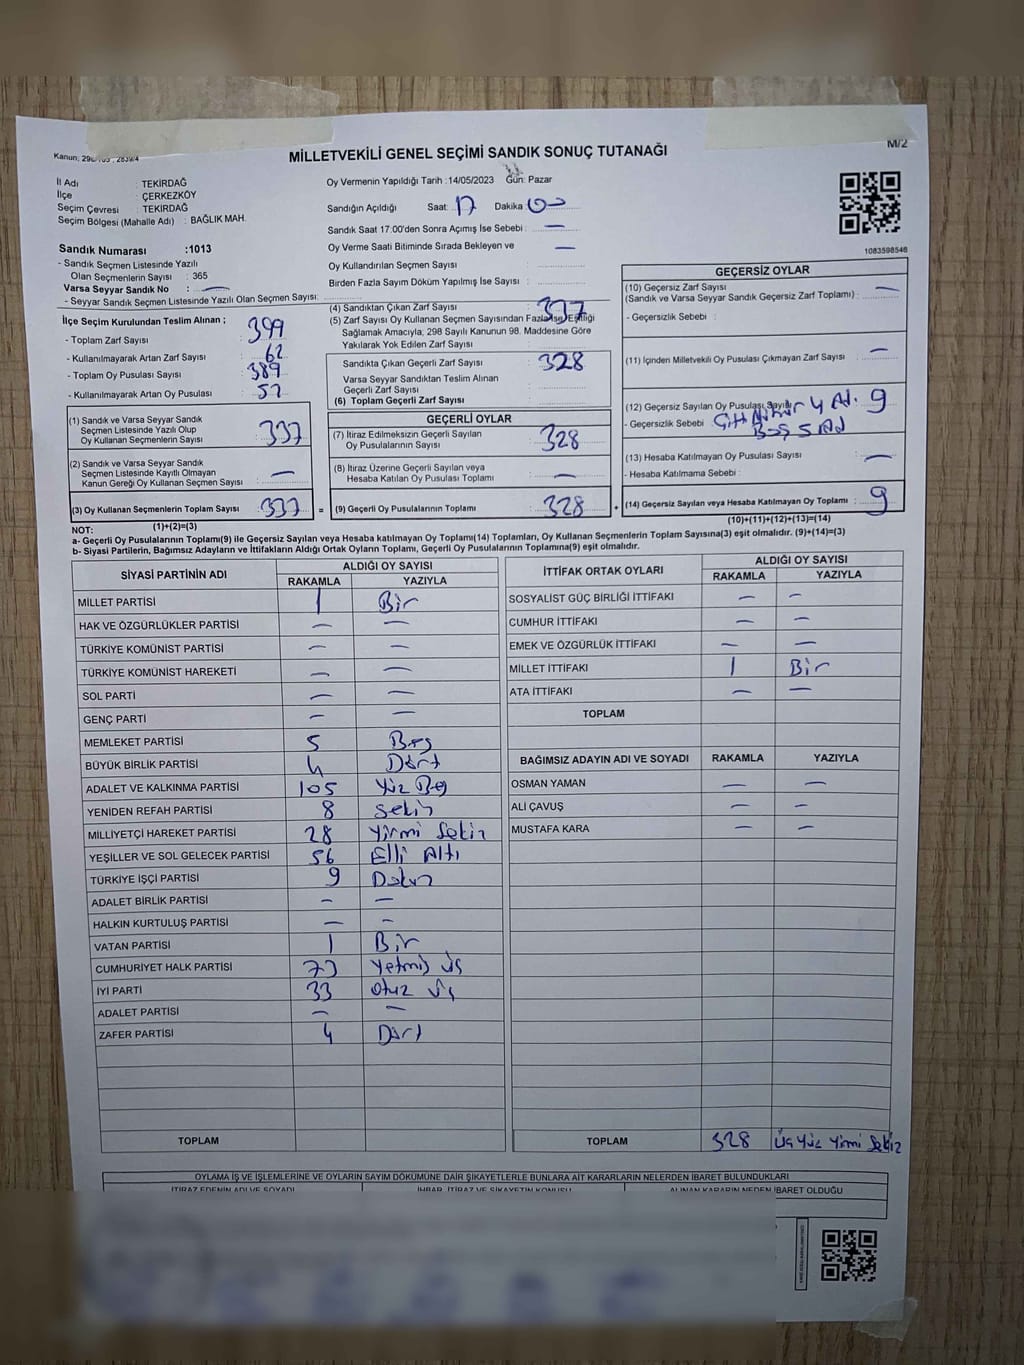 Kanun; 298/105 ; 2839/4
M/2
MİLLETVEKİLİ GENEL SEÇİMİ SANDIK SONUÇ TUTANAĞI
İl Adı : TEKİRDAĞ
İlçe : ÇERKEZKÖY
Seçim Çevresi : TEKİRDAĞ
Seçim Bölgesi (Mahalle Adı) : BAĞLIK MAH.
Oy Vermenin Yapıldığı Tarih :14/05/2023 Gün: Pazar
Sandığın Açıldığı Saat: 17 Dakika 00
Sandık Saat 17.00'den Sonra Açımış İse Sebebi : —
Oy Verme Saati Bitiminde Sırada Bekleyen ve —
Oy Kullandırılan Seçmen Sayısı :
Birden Fazla Sayım Döküm Yapılmış İse Sayısı :
1083598546
Sandık Numarası :1013
- Sandık Seçmen Listesinde Yazılı
Olan Seçmenlerin Sayısı : 365
Varsa Seyyar Sandık No : —
- Seyyar Sandık Seçmen Listesinde Yazılı Olan Seçmen Sayısı:
İlçe Seçim Kurulundan Teslim Alınan ;
- Toplam Zarf Sayısı : 399
- Kullanılmayarak Artan Zarf Sayısı : 62
- Toplam Oy Pusulası Sayısı : 389
- Kullanılmayarak Artan Oy Pusulası : 52
(1) Sandık ve Varsa Seyyar Sandık
Seçmen Listesinde Yazılı Olup
Oy Kullanan Seçmenlerin Sayısı : 337
(2) Sandık ve Varsa Seyyar Sandık
Seçmen Listesinde Kayıtlı Olmayan
Kanun Gereği Oy Kullanan Seçmen Sayısı : —
(3) Oy Kullanan Seçmenlerin Toplam Sayısı : 337
(1)+(2)=(3)
(4) Sandıktan Çıkan Zarf Sayısı : 337
(5) Zarf Sayısı Oy Kullanan Seçmen Sayısından Fazla İse, Eşitliği
Sağlamak Amacıyla; 298 Sayılı Kanunun 98. Maddesine Göre
Yakılarak Yok Edilen Zarf Sayısı :
Sandıkta Çıkan Geçerli Zarf Sayısı : 328
Varsa Seyyar Sandıktan Teslim Alınan
Geçerli Zarf Sayısı :
(6) Toplam Geçerli Zarf Sayısı :
GEÇERLİ OYLAR
(7) İtiraz Edilmeksizin Geçerli Sayılan
Oy Pusulalarının Sayısı : 328
(8) İtiraz Üzerine Geçerli Sayılan veya
Hesaba Katılan Oy Pusulası Toplamı : —
= (9) Geçerli Oy Pusulalarının Toplamı : 328 +
GEÇERSİZ OYLAR
(10) Geçersiz Zarf Sayısı
(Sandık ve Varsa Seyyar Sandık Geçersiz Zarf Toplamı) : —
- Geçersizlik Sebebi :
(11) İçinden Milletvekili Oy Pusulası Çıkmayan Zarf Sayısı : —
(12) Geçersiz Sayılan Oy Pusulası Sayısı : 9
- Geçersizlik Sebebi : Çift Mühür 4 Ad.
Boş 5 Ad
(13) Hesaba Katılmayan Oy Pusulası Sayısı : —
- Hesaba Katılmama Sebebi :
(14) Geçersiz Sayılan veya Hesaba Katılmayan Oy Toplamı : 9
(10)+(11)+(12)+(13)=(14)
NOT:
a- Geçerli Oy Pusulalarının Toplamı(9) ile Geçersiz Sayılan veya Hesaba katılmayan Oy Toplamı(14) Toplamları, Oy Kullanan Seçmenlerin Toplam Sayısına(3) eşit olmalıdır. (9)+(14)=(3)
b- Siyasi Partilerin, Bağımsız Adayların ve İttifakların Aldığı Ortak Oyların Toplamı, Geçerli Oy Pusulalarının Toplamına(9) eşit olmalıdır.
SİYASİ PARTİNİN ADI ALDIĞI OY SAYISI
RAKAMLA YAZIYLA
MİLLET PARTİSİ 1 Bir
HAK VE ÖZGÜRLÜKLER PARTİSİ — —
TÜRKİYE KOMÜNİST PARTİSİ — —
TÜRKİYE KOMÜNİST HAREKETİ — —
SOL PARTİ — —
GENÇ PARTİ — —
MEMLEKET PARTİSİ 5 Beş
BÜYÜK BİRLİK PARTİSİ 4 Dört
ADALET VE KALKINMA PARTİSİ 105 Yüz Beş
YENİDEN REFAH PARTİSİ 8 Sekiz
MİLLİYETÇİ HAREKET PARTİSİ 28 Yirmi Sekiz
YEŞİLLER VE SOL GELECEK PARTİSİ 56 Elli Altı
TÜRKİYE İŞÇİ PARTİSİ 9 Dokuz
ADALET BİRLİK PARTİSİ — —
HALKIN KURTULUŞ PARTİSİ — —
VATAN PARTİSİ 1 Bir
CUMHURİYET HALK PARTİSİ 73 Yetmiş üç
İYİ PARTİ 33 Otuz üç
ADALET PARTİSİ — —
ZAFER PARTİSİ 4 Dört
TOPLAM
İTTİFAK ORTAK OYLARI ALDIĞI OY SAYISI
RAKAMLA YAZIYLA
SOSYALİST GÜÇ BİRLİĞİ İTTİFAKI — —
CUMHUR İTTİFAKI — —
EMEK VE ÖZGÜRLÜK İTTİFAKI — —
MİLLET İTTİFAKI 1 Bir
ATA İTTİFAKI — —
TOPLAM
BAĞIMSIZ ADAYIN ADI VE SOYADI RAKAMLA YAZIYLA
OSMAN YAMAN — —
ALİ ÇAVUŞ — —
MUSTAFA KARA — —
TOPLAM 328 Üç Yüz Yirmi Sekiz
OYLAMA İŞ VE İŞLEMLERİNE VE OYLARIN SAYIM DÖKÜMÜNE DAİR ŞİKAYETLERLE BUNLARA AİT KARARLARIN NELERDEN İBARET BULUNDUKLARI
İTİRAZ EDENİN ADI VE SOYADI İHBAR, İTİRAZ VE ŞİKAYETİN KONUSU ALINAN KARARIN NEDEN İBARET OLDUĞU